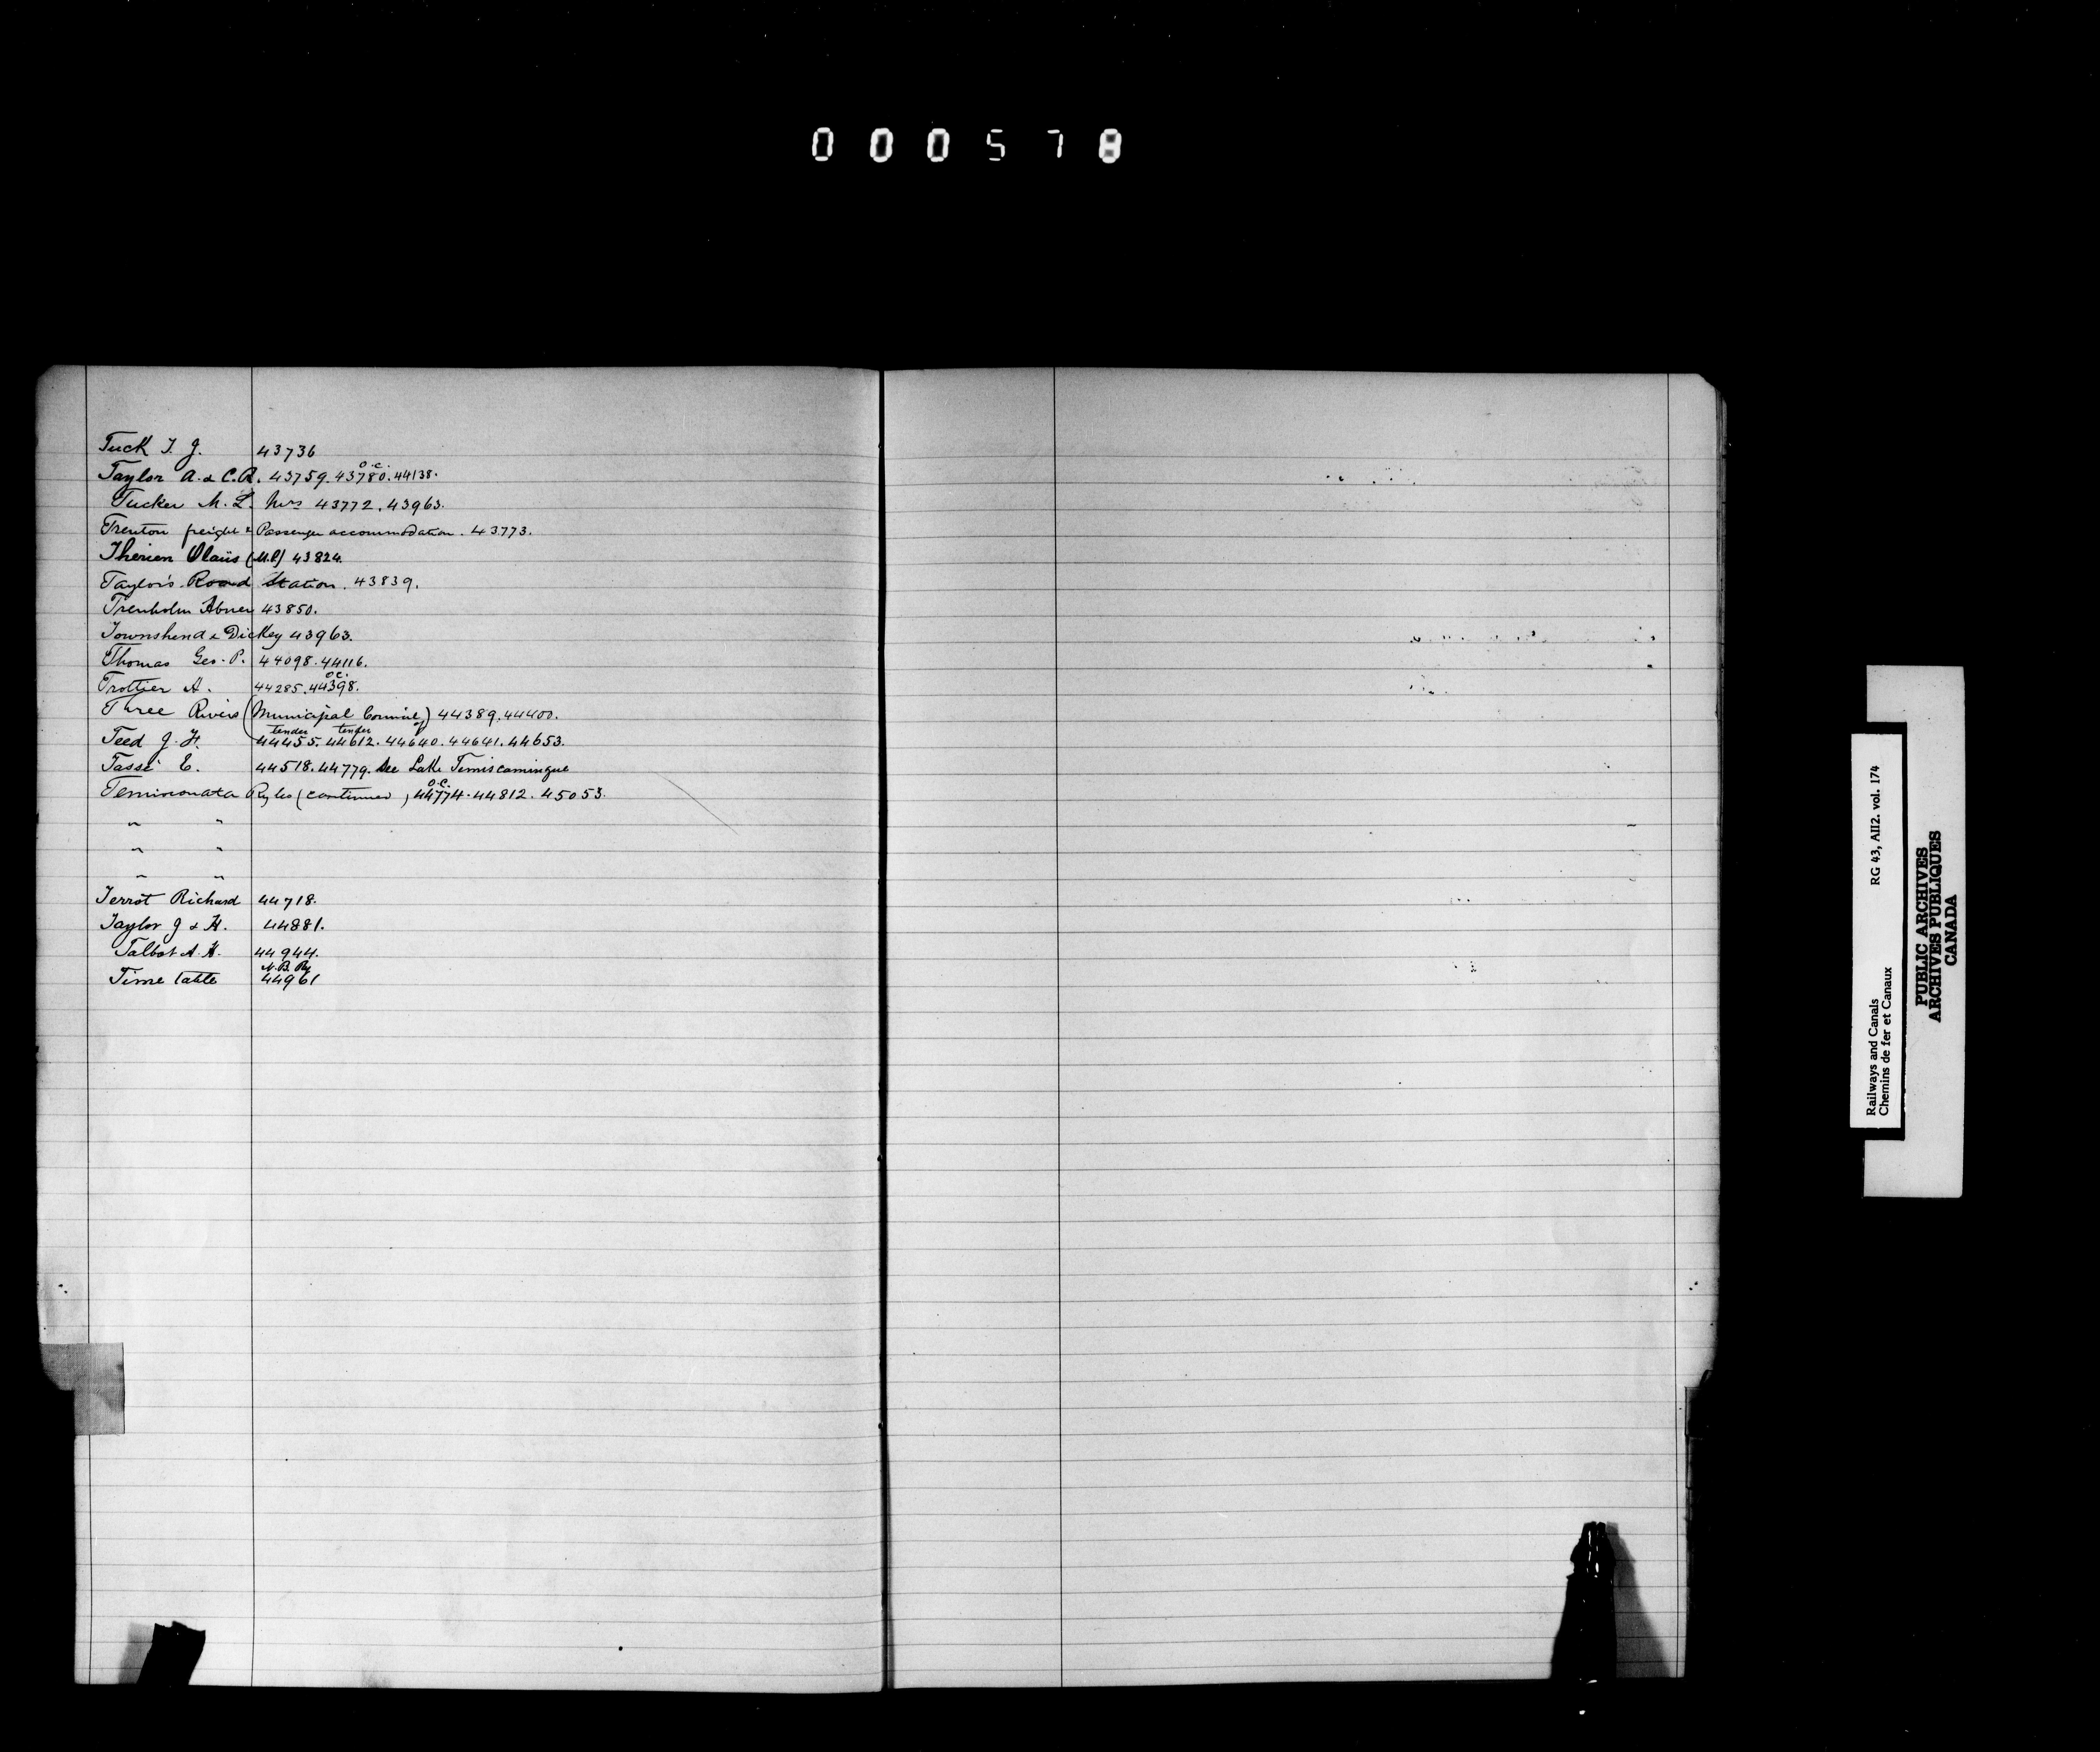 000578
Tuck T. J. 43736
O.C.
Taylor A. & C. R. 43759. 43780. 44138.
Tucker M. L. Mrs 43772. 43963.
Trenton freight & Passenger accommodation. 43773.
Therien Olaüs (M.P.) 43824.
Taylor's Road Station. 43839.
Trenholm Abner 43850.
Townshend & Dickey 43963.
Thomas Geo. P. 44098. 44116.
O.C.
Trottier A. 44285. 44398.
Three Rivers (Municipal Council of) 44389. 44400.
tender tender
Teed J. H. 44455. 44612. 44640. 44641. 44653.
Tassé E. 44518. 44779. See Lake Temiscamingue
O.C.
Temisconata Ry Co (continued) 44774. 44812. 45053.
" "
" "
" "
Terrot Richard 44718.
Taylor J & H. 44881.
Talbot A. H. 44944.
N. B. Ry
Time table 44961
Railways and Canals RG 43, AII2. vol. 174
Chemins de fer et Canaux
PUBLIC ARCHIVES
ARCHIVES PUBLIQUES
CANADA